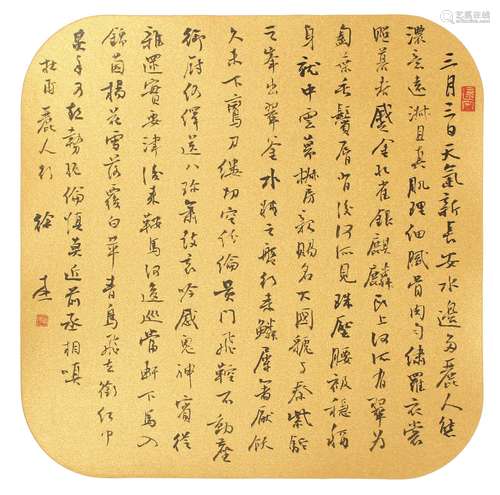 三月三日天氣新長安水邊多麗人態
濃意遠淑且真肌理細膩骨肉勻繡羅衣裳
照暮春蹙金孔雀銀麒麟頭上何所有翠為
匎葉垂鬢唇背後何所見珠壓腰衱穩稱
身就中雲幕椒房親賜名大國虢與秦紫駝
之峰出翠釜水精之盤行素鱗犀箸厭飫
久未下鸞刀縷切空紛綸黃門飛鞚不動塵
御廚絡繹送八珍簫鼓哀吟感鬼神賓從
雜遝實要津後來鞍馬何逡巡當軒下馬入
錦茵楊花雪落覆白蘋青鳥飛去銜紅巾
炙手可熱勢絕倫慎莫近前丞相嗔
杜甫麗人行 徐